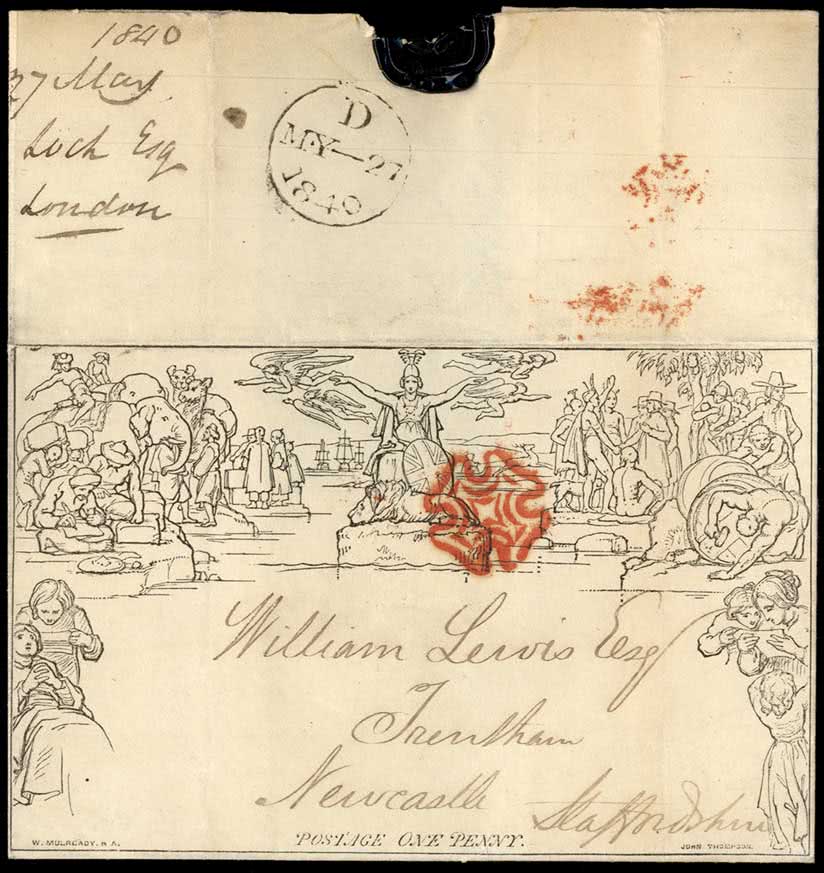 1840
27 May
Loch Esq
London
D
MY-27
1840
William Lewis Esq
Trentham
Newcastle Staffordshire
POSTAGE ONE PENNY.
W. MULREADY. R A.
JOHN THOMPSON.